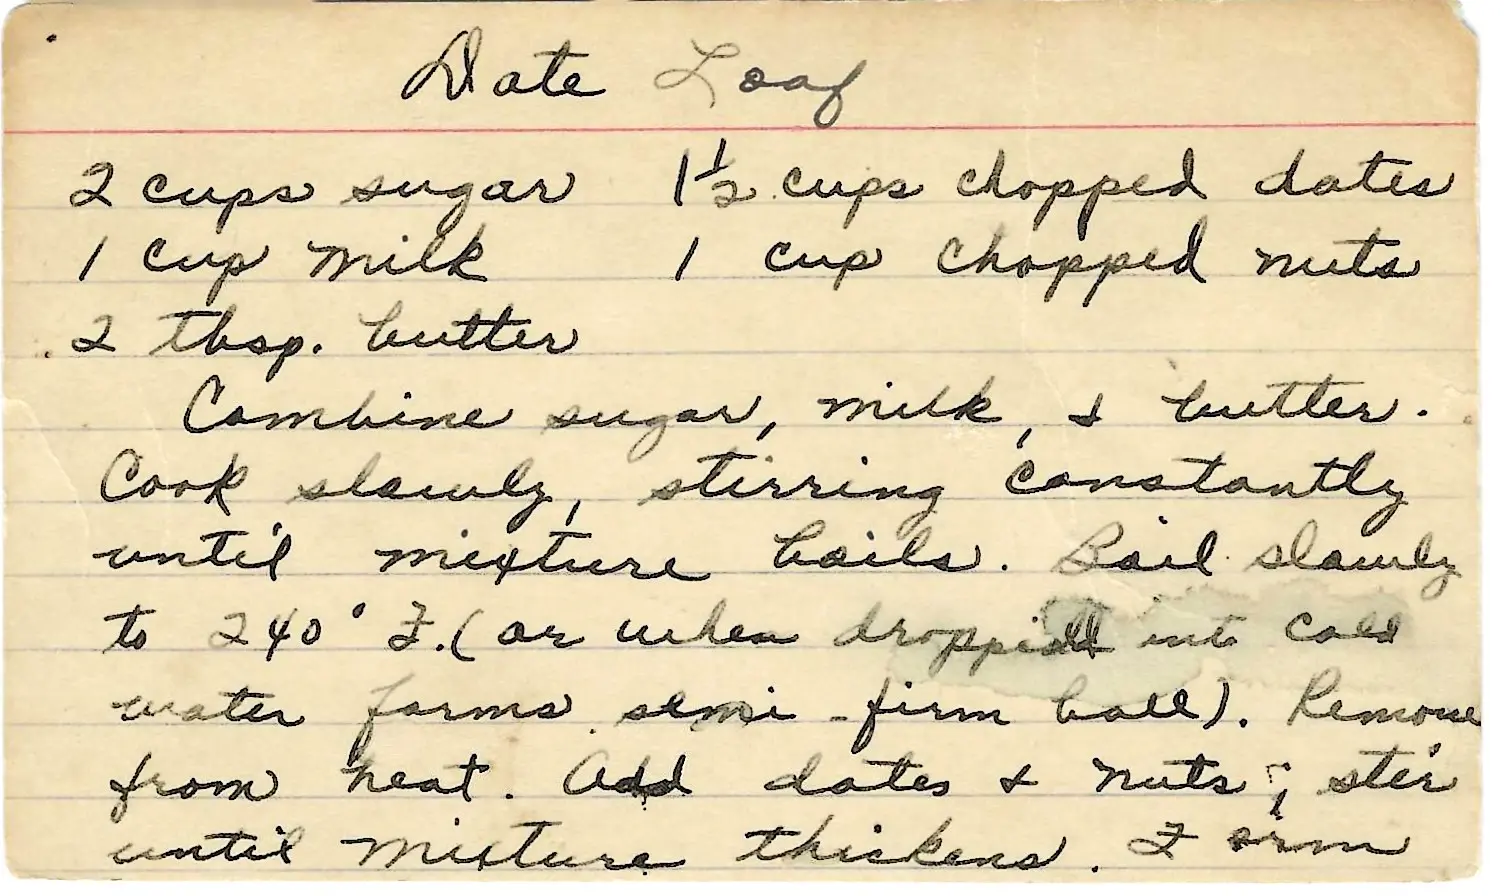 Date Loaf
2 cups sugar 1½ cups chopped dates
1 cup milk 1 cup chopped nuts
2 tbsp. butter
Combine sugar, milk, & butter.
Cook slowly, stirring constantly
until mixture boils. Boil slowly
to 240° F. (or when dropped into cold
water forms semi-firm ball). Remove
from heat. Add dates & nuts; stir
until mixture thickens. Form